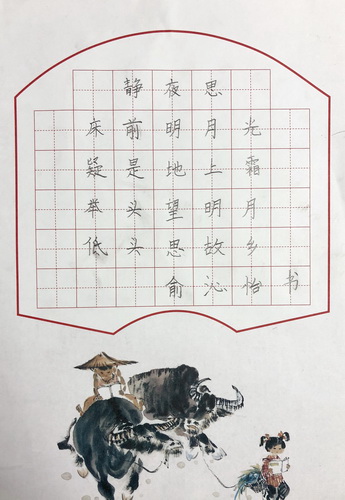 静夜思
床前明月光
疑是地上霜
举头望明月
低头思故乡
俞沁怡书